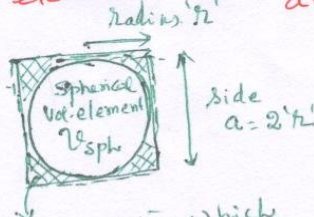 radius 'r'
spherical
vol-element
Vsph
side
a = 2'r'
which